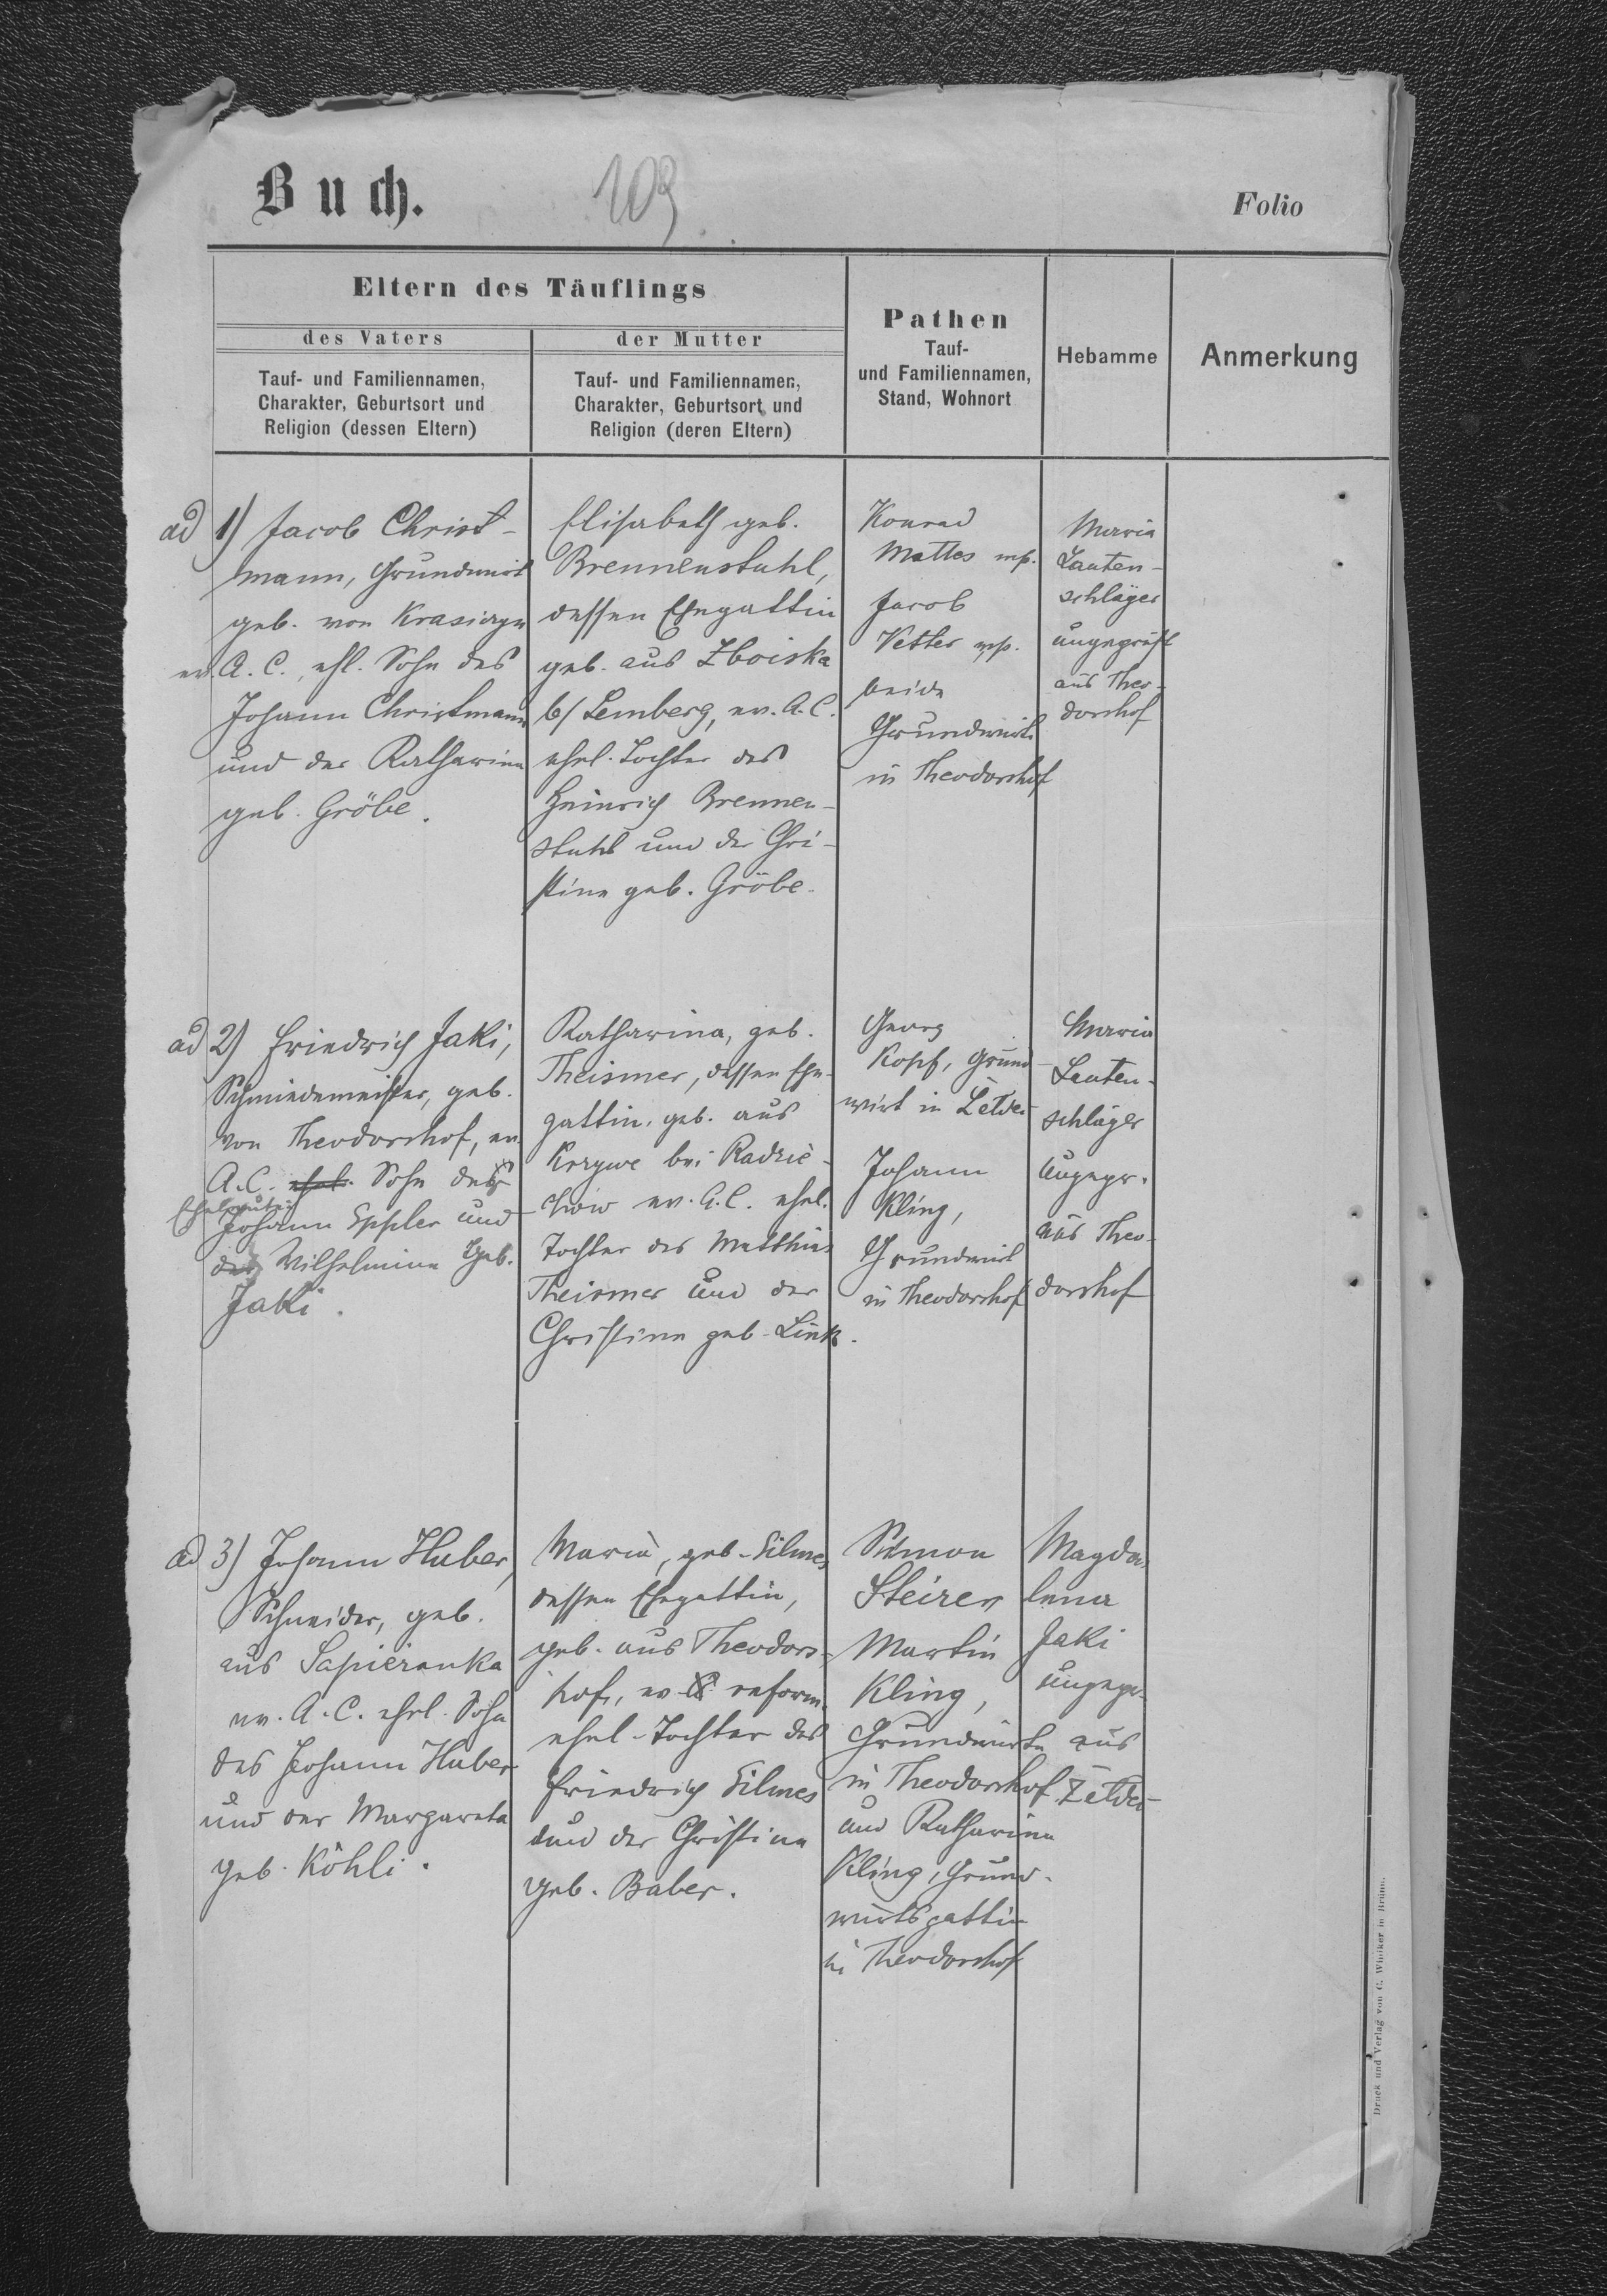 Buch.
109.
Folio
Eltern des Täuflings
des Vaters
Tauf- und Familiennamen,
Charakter, Geburtsort und
Religion (dessen Eltern)
der Mutter
Tauf- und Familiennamen,
Charakter, Geburtsort und
Religion (deren Eltern)
Pathen
Tauf-
und Familiennamen,
Stand, Wohnort
Hebamme
Anmerkung
ad 1) Jacob Christ-
mann, Grundwirt
geb. von
ev. A. C., ehl. Sohn des
Johann Christmann
und der Katharina
geb. Gröbe.
Elisabeth geb.
Brennenstuhl,
dessen Ehegattin
geb. aus Zboiska
b/ Lemberg, ev. A. C.
ehel. Tochter des
Heinrich Brennen-
stuhl und der Chri-
stine geb. Gröbe.
Konrad
Mattes mp.
Jacob
Vetter mp.
beide
Grundwirte
in Theodorshof
Maria
Lauten-
schläger
ungeprüft
aus Theo-
dorshof
ad 2) Friedrich Jaki,
Schmiedemeister, geb.
von Theodorshof, ev.
A. C. ehel. Sohn der
Eheleute
Johann Eppler und
der Wilhelmine geb.
Jaki.
Katharina, geb.
Theismer, dessen Ehe-
gattin, geb. aus
Krzywe bei Radzie-
chow ev. A. C. ehel.
Tochter des Matthias
Theismer und der
Christine geb. Link.
Georg
Kopf, Grund-
wirt in
Johann
Kling,
Grundwirt
in Theodorshof
Maria
Lauten-
schläger
ungepr.
aus Theo-
dorshof
ad 3) Johann Huber,
Schneider, geb.
aus Sapieranka
ev. A. C. ehel. Sohn
des Johann Huber
und der Margareta
geb. Köhli.
Maria, geb. Silmes
dessen Ehegattin,
geb. aus Theodors-
hof, ev. reform.
ehel. Tochter des
Friedrich Silmes
und der Christine
geb. Baber.
Simon
Steirer
Martin
Kling,
Grundwirte
in Theodorshof
und Katharina
Kling, Grund-
wirtsgattin
in Theodorshof
Magda-
lena
Jaki
ungepr.
aus
Druck und Verlag von C. Winiker in Brünn.